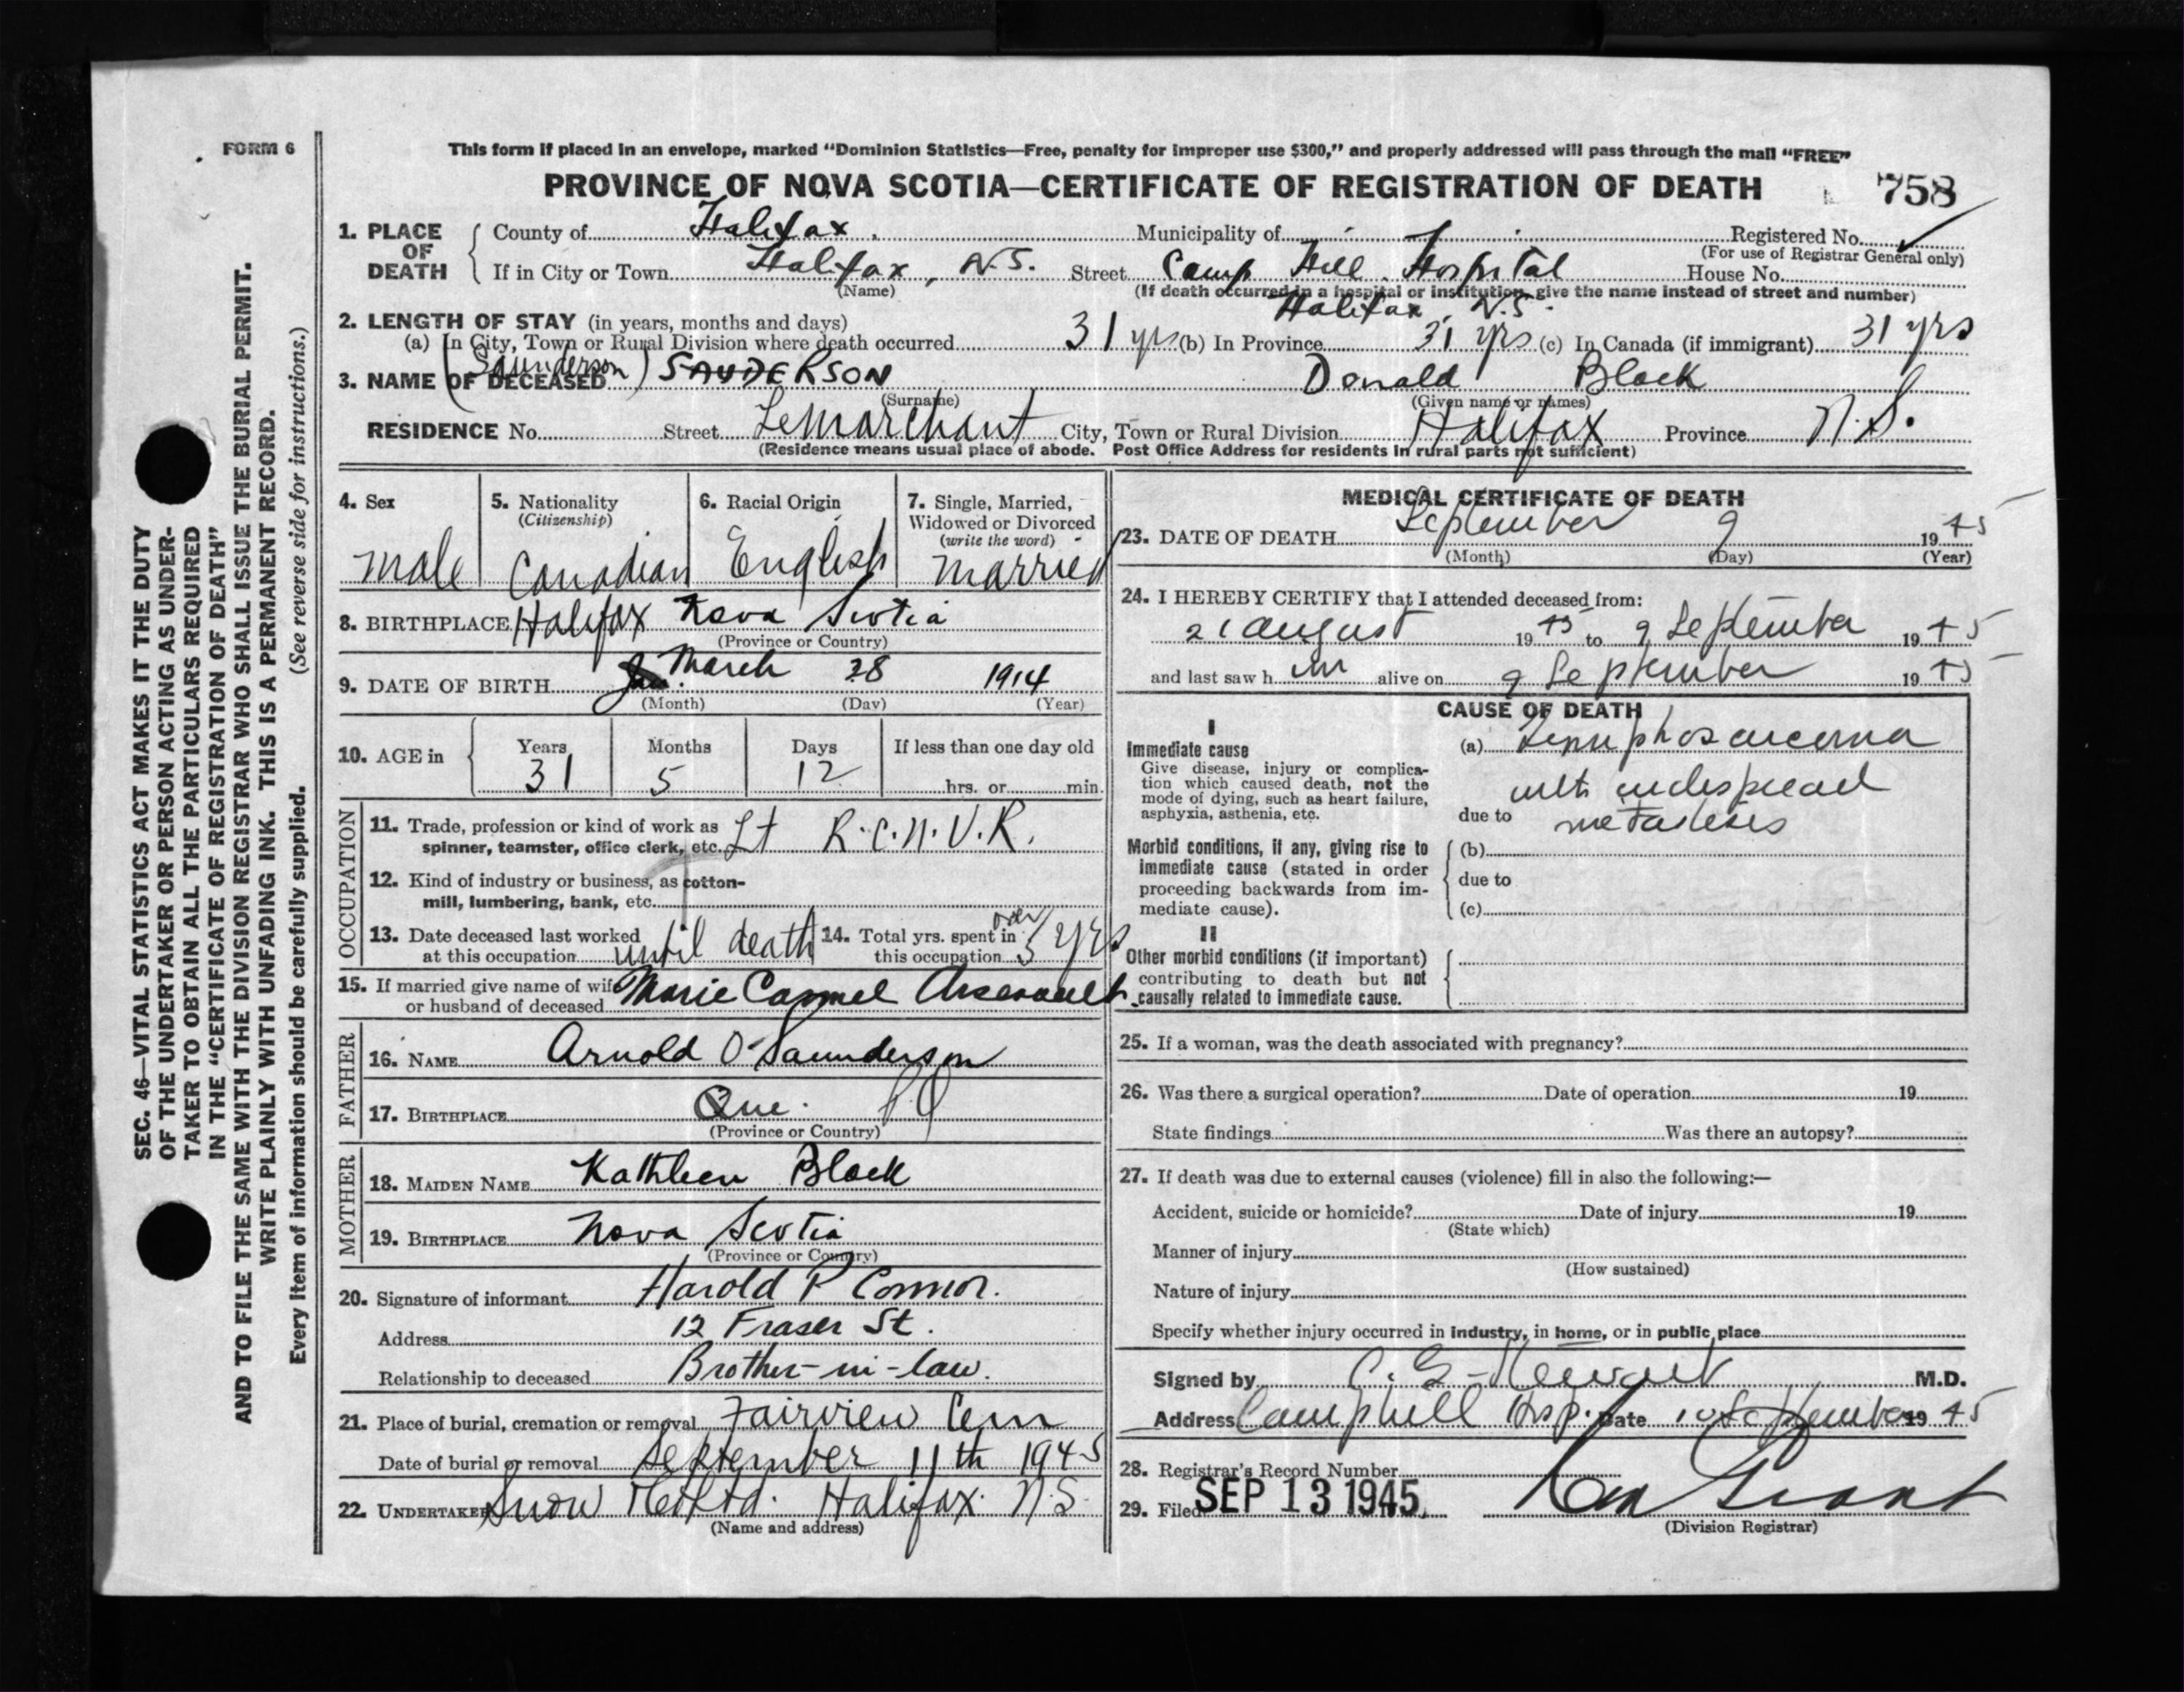 FORM 6
This form if placed in an envelope, marked "Dominion Statistics—Free, penalty for improper use $300," and properly addressed will pass through the mail "FREE"
PROVINCE OF NOVA SCOTIA—CERTIFICATE OF REGISTRATION OF DEATH 758
1. PLACE OF DEATH County of Halifax Municipality of Registered No.
(For use of Registrar General only)
If in City or Town Halifax, N.S. Street Camp Hill Hospital House No.
(Name) (If death occurred in a hospital or institution give the name instead of street and number)
Halifax, N.S.
2. LENGTH OF STAY (in years, months and days)
(a) In City, Town or Rural Division where death occurred 31 yrs (b) In Province 31 yrs (c) In Canada (if immigrant) 31 yrs
3. NAME OF DECEASED (Saunderson) SAUDERSON Donald Black
(Surname) (Given name or names)
RESIDENCE No. Street LeMarchant City, Town or Rural Division Halifax Province N.S.
(Residence means usual place of abode. Post Office Address for residents in rural parts not sufficient)
4. Sex Male
5. Nationality (Citizenship) Canadian
6. Racial Origin English
7. Single, Married, Widowed or Divorced (write the word) Married
8. BIRTHPLACE Halifax Nova Scotia
(Province or Country)
9. DATE OF BIRTH March 28 1914
(Month) (Day) (Year)
10. AGE in Years 31 Months 5 Days 12 If less than one day old
hrs. or min.
OCCUPATION
11. Trade, profession or kind of work as
spinner, teamster, office clerk, etc. Lt R.C.N.V.R.
12. Kind of industry or business, as cotton-
mill, lumbering, bank, etc.
13. Date deceased last worked
at this occupation until death
14. Total yrs. spent in
this occupation over 3 yrs
15. If married give name of wife
or husband of deceased Marie Carmel Arsenault
FATHER
16. NAME Arnold O Saunderson
17. BIRTHPLACE Que. PQ
(Province or Country)
MOTHER
18. MAIDEN NAME Kathleen Black
19. BIRTHPLACE Nova Scotia
(Province or Country)
20. Signature of informant Harold P Connor.
Address 12 Fraser St.
Relationship to deceased Brother-in-law.
21. Place of burial, cremation or removal Fairview Cem
Date of burial or removal September 11th 1945
22. UNDERTAKER Snow Ltd. Halifax N.S.
(Name and address)
MEDICAL CERTIFICATE OF DEATH
23. DATE OF DEATH September 9 1945
(Month) (Day) (Year)
24. I HEREBY CERTIFY that I attended deceased from:
21 August 1945 to 9 September 1945
and last saw him alive on 9 September 1945
CAUSE OF DEATH
I
Immediate cause
Give disease, injury or complica-
tion which caused death, not the
mode of dying, such as heart failure,
asphyxia, asthenia, etc.
(a) Lymphosarcoma
with widespread
due to metastases
Morbid conditions, if any, giving rise to
immediate cause (stated in order
proceeding backwards from im-
mediate cause).
(b)
due to
(c)
II
Other morbid conditions (if important)
contributing to death but not
causally related to immediate cause.
25. If a woman, was the death associated with pregnancy?
26. Was there a surgical operation? Date of operation 19
State findings Was there an autopsy?
27. If death was due to external causes (violence) fill in also the following:—
Accident, suicide or homicide? Date of injury 19
(State which)
Manner of injury
(How sustained)
Nature of injury
Specify whether injury occurred in industry, in home, or in public place
Signed by C. G. Stewart M.D.
Address Camphill Hosp. Date 10 September 1945
28. Registrar's Record Number
29. Filed SEP 13 1945
(Division Registrar)
SEC. 46—VITAL STATISTICS ACT MAKES IT THE DUTY
OF THE UNDERTAKER OR PERSON ACTING AS UNDER-
TAKER TO OBTAIN ALL THE PARTICULARS REQUIRED
IN THE "CERTIFICATE OF REGISTRATION OF DEATH"
AND TO FILE THE SAME WITH THE DIVISION REGISTRAR WHO SHALL ISSUE THE BURIAL PERMIT.
WRITE PLAINLY WITH UNFADING INK. THIS IS A PERMANENT RECORD.
Every item of information should be carefully supplied. (See reverse side for instructions.)